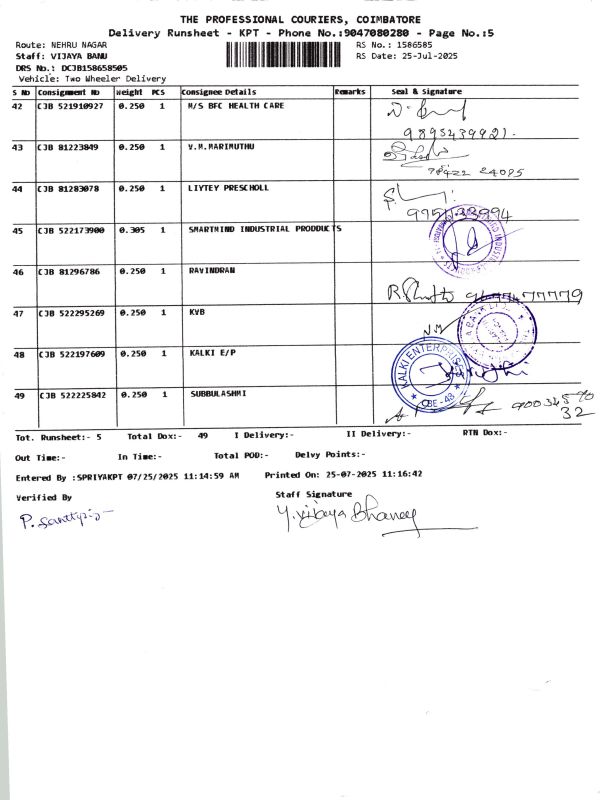 THE PROFESSIONAL COURIERS, COIMBATORE
Delivery Runsheet - KPT - Phone No.:9047080280 - Page No.:5
Route: NEHRU NAGAR
RS No.: 1586585
Staff: VIJAYA BANU
RS Date: 25-Jul-2025
DRS No.: DCJB158658505
Vehicle: Two Wheeler Delivery
S No Consignment No Weight PCS Consignee Details Remarks Seal & Signature
42 CJB 521910927 0.250 1 M/S BFC HEALTH CARE
9895439921.
43 CJB 81223849 0.250 1 V.M.MARIMUTHU
78422 24095
44 CJB 81283078 0.250 1 LIYTEY PRESCHOLL
45 CJB 522173900 0.305 1 SMARTMIND INDUSTRIAL PRODDUCTS
46 CJB 81296786 0.250 1 RAVINDRAN
9677477779
47 CJB 522295269 0.250 1 KVB
48 CJB 522197609 0.250 1 KALKI E/P
KALKI ENTERPRISE
CBE-48
49 CJB 522225842 0.250 1 SUBBULASHMI
32
Tot. Runsheet:- 5 Total Dox:- 49 I Delivery:- II Delivery:- RTN Dox:-
Out Time:- In Time:- Total POD:- Delvy Points:-
Entered By :SPRIYAKPT 07/25/2025 11:14:59 AM Printed On: 25-07-2025 11:16:42
Verified By
Staff Signature
Y. Vijaya Bhanu